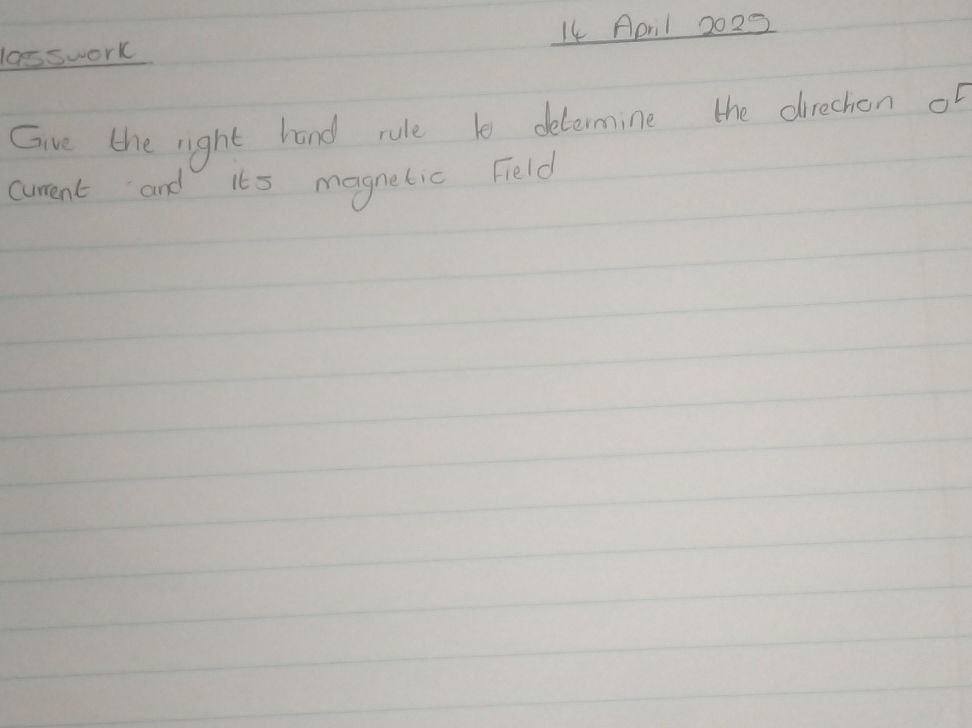 14 April 2025
lasswork
Give the right hand rule to determine the direction of
current and its magnetic Field